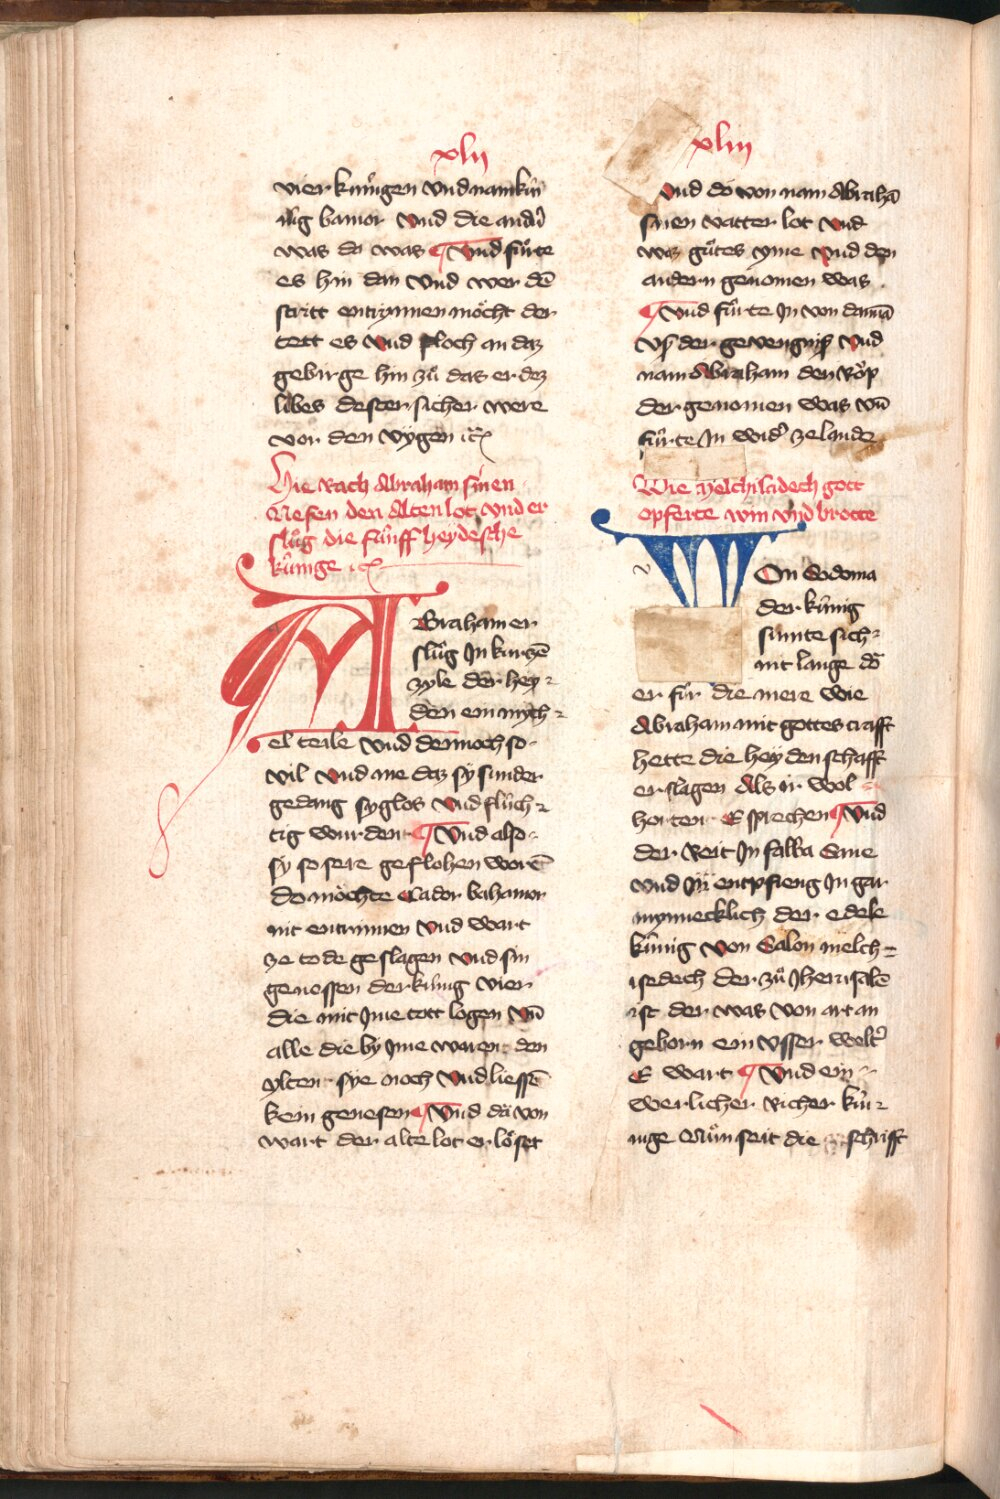 xlij
vier kunigen vnd nam kúni
nig bamor vnd die andern
was do was ¶ Vnd fuͦrte
es hin dan vnd wer dē
stritt entrynnen moͤcht der
tett es vnd floch an daz
gebirge hin zuͦ das er dez
libes dester sicher were
vor den vygen ꝛc
Hie Rach Abraham sinen
Nefen den Alten lot vnd er
sluͦg die fúnff heydesche
kúnige ꝛc
ABraham er
sluͦg In kurtzē
zyle der hey⸗
den ein mych⸗
el teile vnd dennoch so
vil vnd me daz sy sunder
gedang syglos vnd fluͤch⸗
tig wurdent ¶ Vnd also
sy so sere geflohen worē
do moͤchte Cador bahamor
nit entrinnen vnd wart
ze tode geslagen vnd sin
genossen der kúnig vier
die mit Ime tott logen vñ
alle die by Ime waren den
ylten sye noch vnd liessē
kein genesen ¶ Vnd da von
wart der alte lot er loͤset
xliij
Vnd do von nam Abrahā
sinen vatter lot vnd
waz guͤtes yme vnd den
andern genomen was
¶ Vnd fuͦrte In von dannā
vß der gevengniß vnd
nam Abraham den Roͧp
der genomen was vñ
fuͦrte In wider ze lande
Wie Melchisedech gott
opferte win vnd brotte
VOn Sodoma
der kúnig
sumte sich⸗
nit lange do
er fúr die mere wie
Abraham mit gottes crafft
hette die heydenschafft
erslagen Als ir wol
horten E sprechen ¶ Vnd
der Reit In falba Saue
vnd In entpfieng In gar
mynnecklich der edele
kúnig von Salon melch⸗
isedech der zuͦ Jherusalē
ist der was von art an
geborn ein vsser welter
E wart ¶ Vnd ein
werlicher Richer kúi⸗
nige Nuͦn seit die schrifft